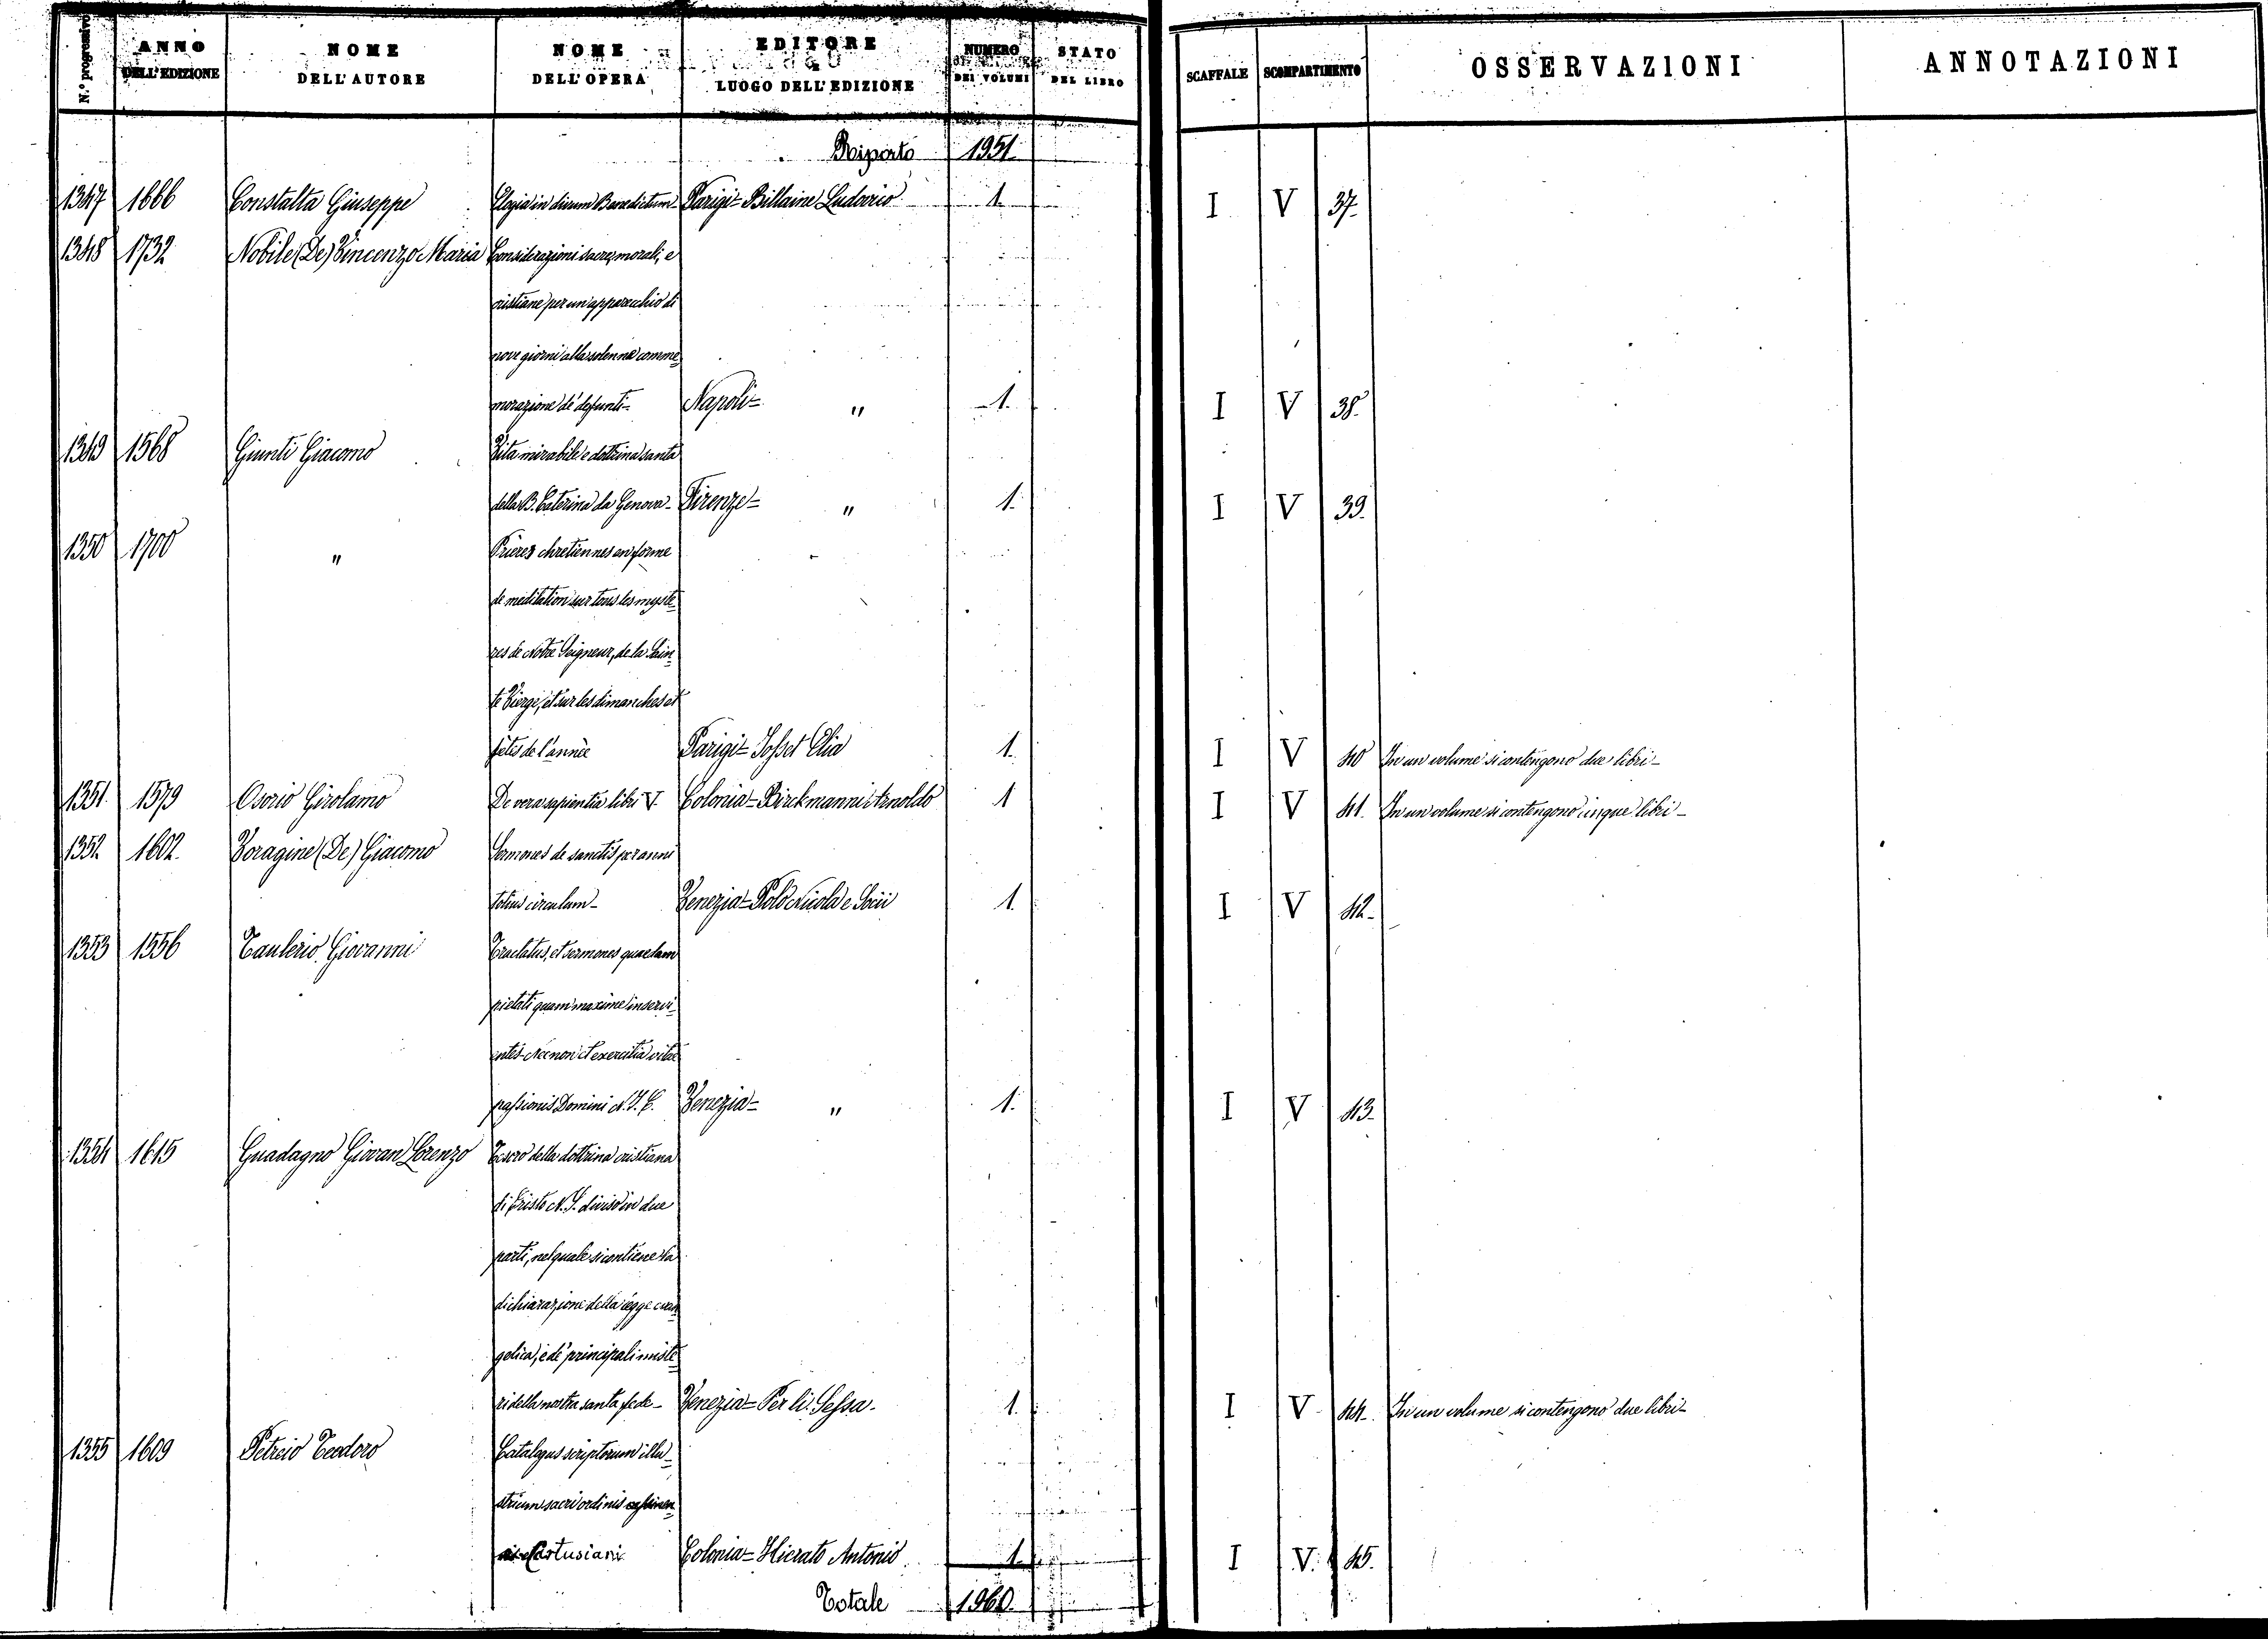 N.º progressivo | ANNO DELL'EDIZIONE | NOME DELL'AUTORE | NOME DELL'OPERA | EDITORE E LUOGO DELL'EDIZIONE | NUMERO DEI VOLUMI | STATO DEL LIBRO | SCAFFALE | SCOMPARTIMENTO | OSSERVAZIONI | ANNOTAZIONI
Riporto 1951
1347 1666 Constalta Giuseppe Elogia in divum Benedictum- Parigi= Billaine Ludovico 1. I V 37.
1348 1732 Nobile (De) Vincenzo Maria Considerazioni sacre, morali, e
cristiane per un'apparecchio di
nove giorni alla solenne comme=
morazione de' defunti- Napoli= " 1. I V 38.
1349 1568 Giunti Giacomo Vita mirabile e dottrina santa
della B. Caterina da Genova- Firenze= " 1. I V 39.
1350 1700 " Prieres chretiennes en forme
de meditation sur tous les myste=
res de Notre Seigneur, de la Sain=
te Vierge, et sur les dimanches et
fêtes de l'année Parigi= Josset Elia 1. I V 40 In un volume si contengono due libri-
1351 1579 Osorio Girolamo De vera sapientia libri V. Colonia= Birckmanni Arnoldo 1 I V 41. In un volume si contengono cinque libri-
1352 1602. Voragine (De) Giacomo Sermones de sanctis per anni
totius circulum- Venezia= Polo Nicola e Socii 1. I V 42.
1353 1556 Taulerio Giovanni Tractatus, et sermones quaedam
pietati quam maxime inservi=
entes. Necnon et exercitia vitae
passionis Domini N. J. C. Venezia= " 1. I V 43.
1354 1615 Guadagno Giovan Lorenzo Tesoro della dottrina cristiana
di Cristo N. S. diviso in due
parti, nel quale si contiene la
dichiarazione della legge evan=
gelica, e de' principali miste=
ri della nostra santa fede- Venezia= Per li Sessa. 1. I V 44. In un volume si contengono due libri-
1355 1609 Petreio Teodoro Catalogus scriptorum illu=
strium sacri ordinis
Cartusiani Colonia= Hierato Antonio 1. I V. 45.
Totale 1960.